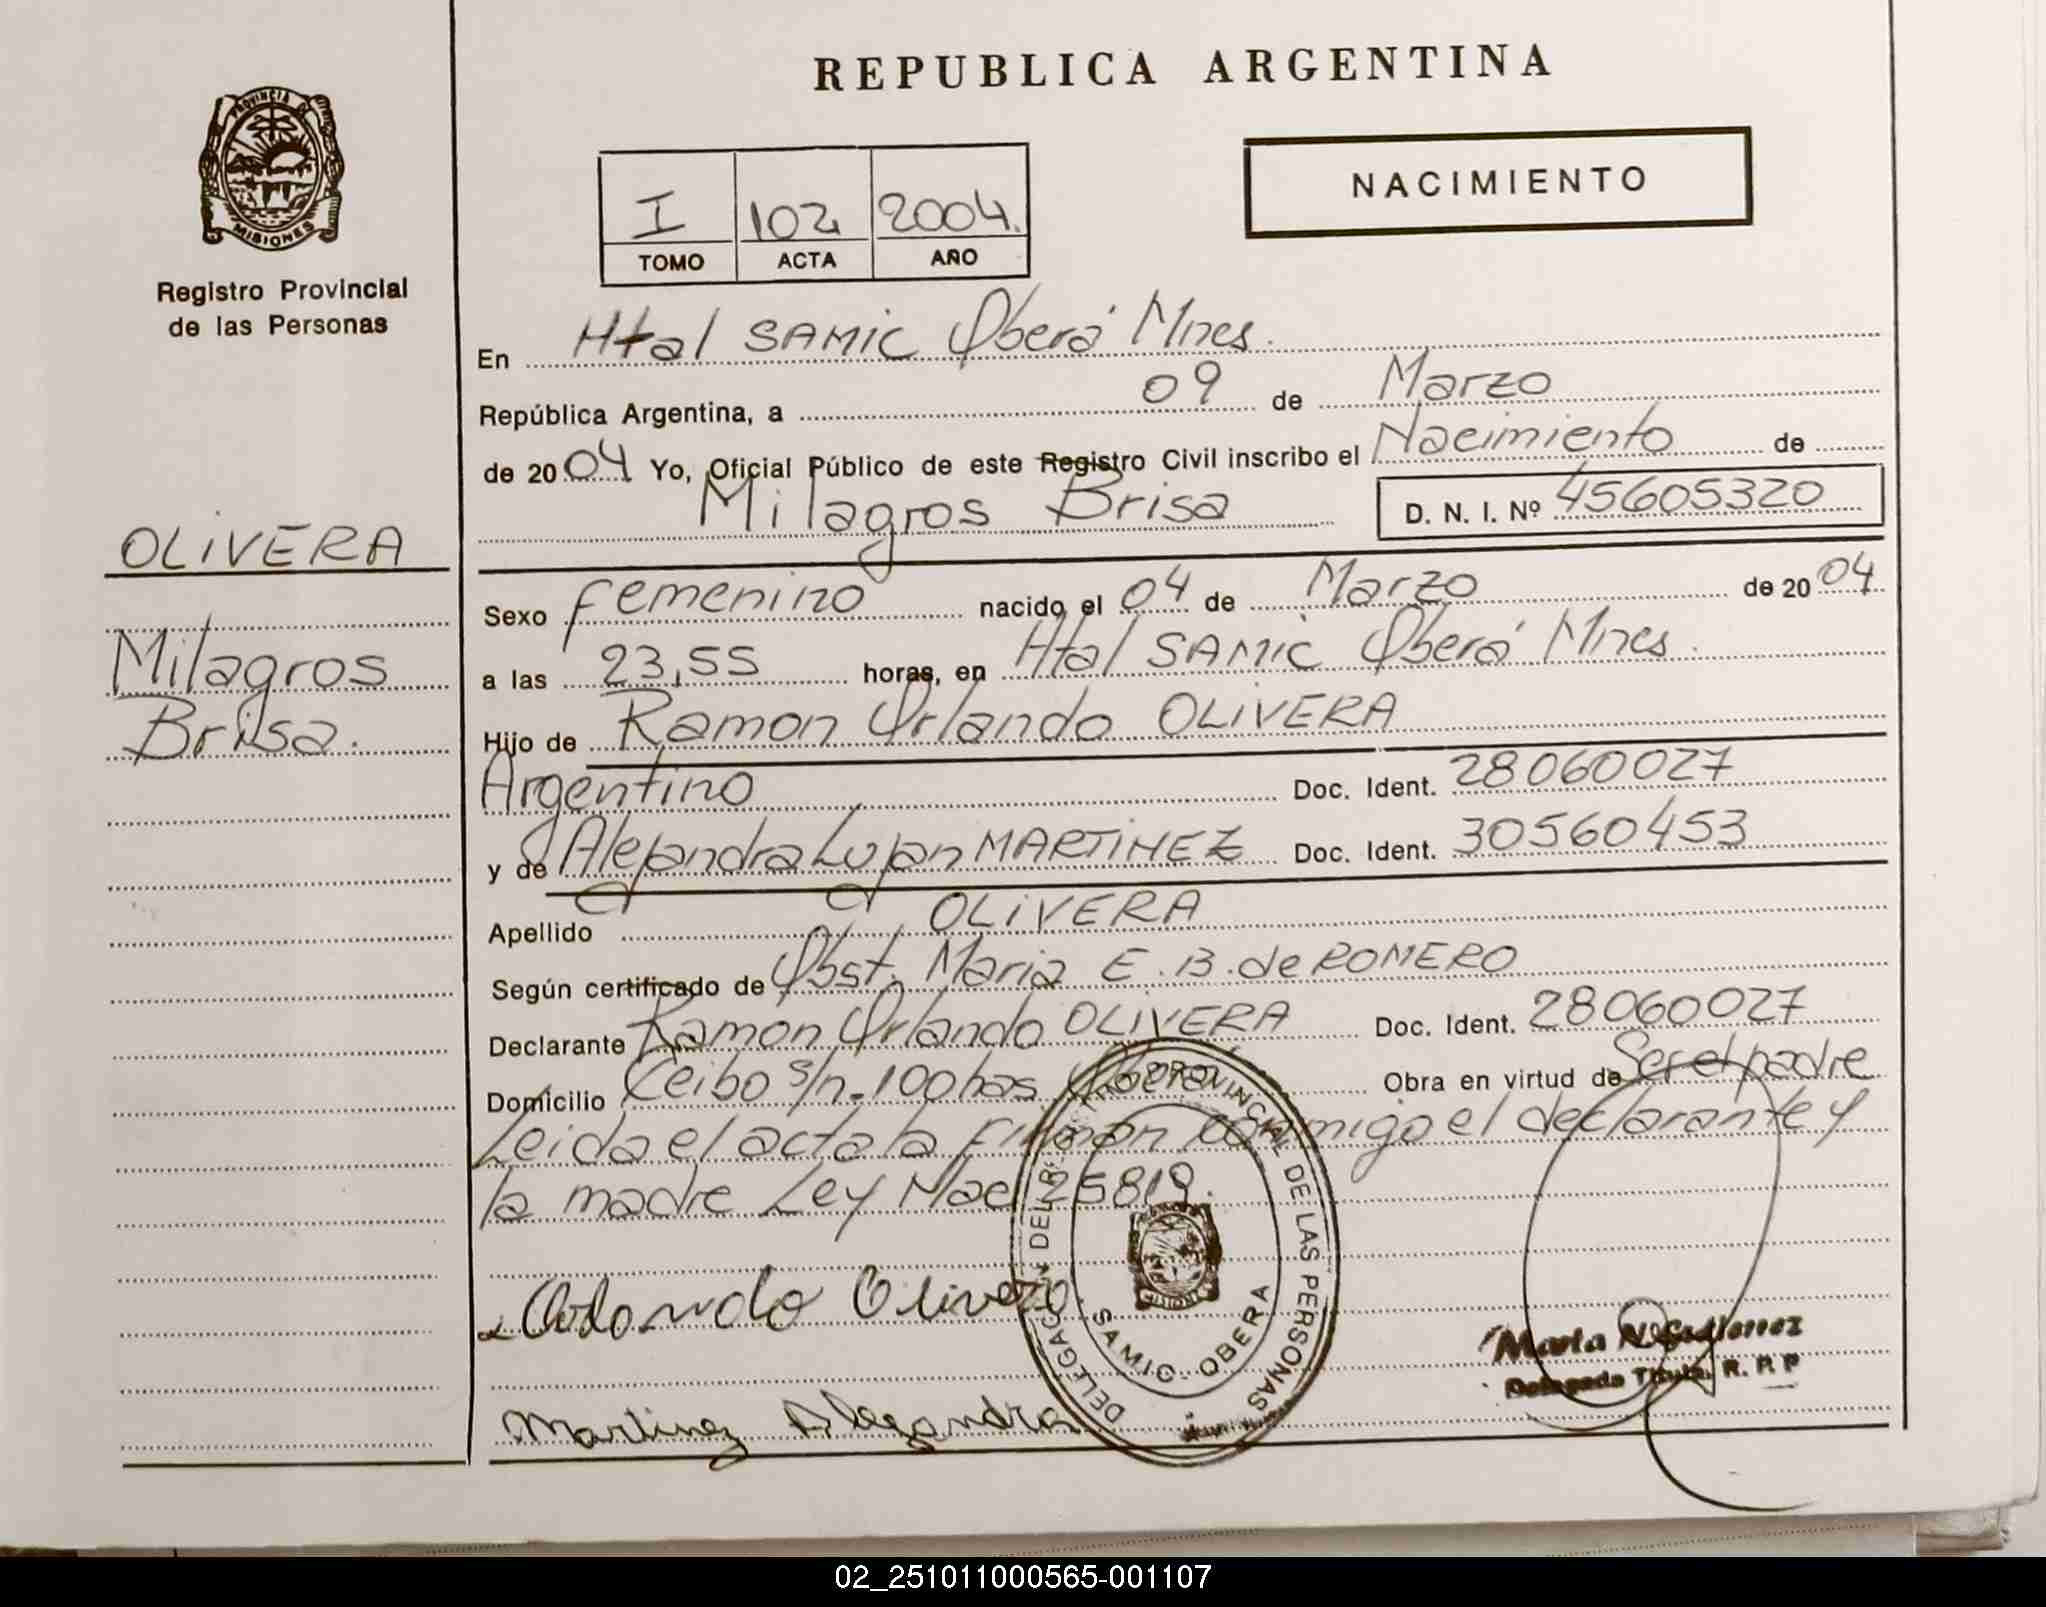 REPUBLICA ARGENTINA
PROVINCIA DE
MISIONES
Registro Provincial
de las Personas
I 102 2004.
TOMO ACTA AÑO
NACIMIENTO
En Htal SAMIC Oberá Mnes.
República Argentina, a 09 de Marzo
de 2004 Yo, Oficial Público de este Registro Civil inscribo el Nacimiento de
Milagros Brisa D. N. I. Nº 45605320
OLIVERA
Milagros
Brisa.
Sexo femenino nacido el 04 de Marzo de 2004.
a las 23,55 horas, en Htal SAMIC Oberá Mnes.
Hijo de Ramon Orlando OLIVERA
Argentino Doc. Ident. 28060027
y de Alejandra Lujan MARTINEZ Doc. Ident. 30560453
Apellido OLIVERA
Según certificado de Obst. Maria E. B. de ROMERO
Declarante Ramon Orlando OLIVERA Doc. Ident. 28060027
Domicilio Ceibo s/n. 100 has Oberá Obra en virtud de Ser el padre
Leida el acta la firman conmigo el declarante y
la madre Ley Nac 25819.
Orlando Olivera
Martinez Alejandra
DELEGACION DEL REGISTRO PROVINCIAL DE LAS PERSONAS
SAMIC OBERA
MISIONES
Marta N. Gutierrez
Delegada Titular R. P. P
02_251011000565-001107